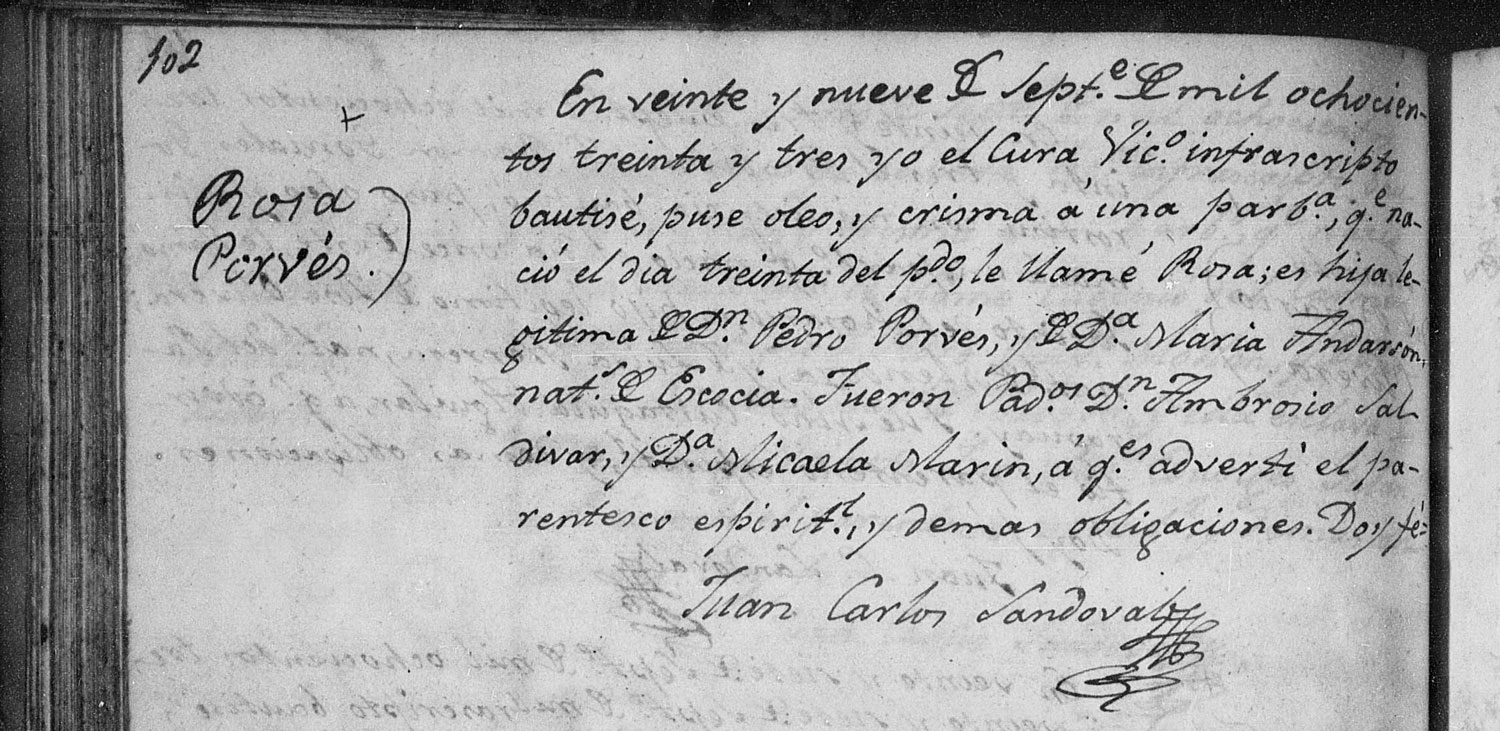 102
+
Rosa
Porvés.
En veinte y nueve de Sept.e de mil ochocien-
tos treinta y tres yo el Cura Vic.o infrascripto
bautisé, puse oleo, y crisma á una parb.a, q.e na-
ció el dia treinta del p.do, le llamé Rosa; es hija le-
gitima de D.n Pedro Porvés, y de D.a Maria Andarsón,
nat.s de Escocia. Fueron Pad.os D.n Ambrosio Sal
divar, y D.a Micaela Marin, á q.es advertí el pa-
rentesco espirit.l, y demas obligaciones. Doy fé=
Juan Carlos Sandoval